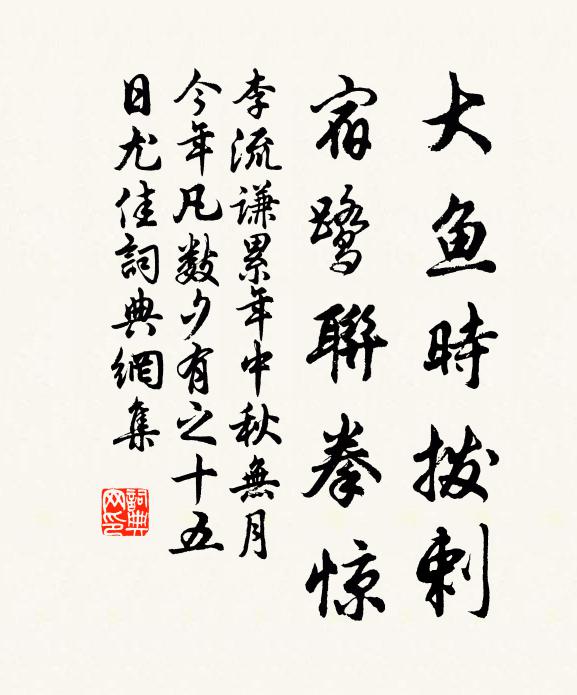 大鱼時拨剌
宿鹭聯拳惊
李流謙累年中秋無月
今年凡數夕有之十五
日尤佳詞典網集
詞典网印